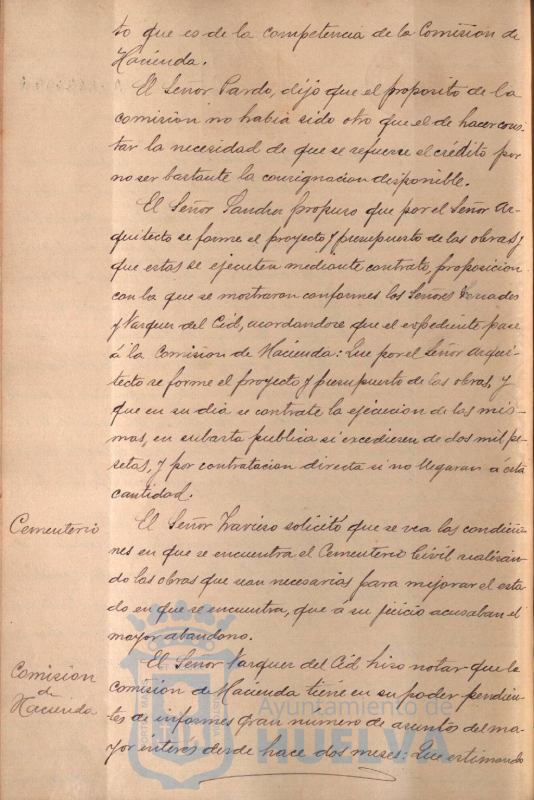 to que es de la competencia de la Comision de
Hacienda.
El Señor Pardo, dijo que el proposito de la
comision no habia sido otro que el de hacer cons-
tar la necesidad de que se refuerce el crédito por
no ser bastante la consignacion disponible.
El Señor Sandro propuso que por el Señor Ar-
quitecto se forme el proyecto y presupuesto de las obras, y
que estas se ejecuten mediante contrato, proposicion
con la que se mostraron conformes los Señores
y Vazquez del Cid, acordandose que el expediente pase
á la Comision de Hacienda: Que por el Señor Arqui-
tecto se forme el proyecto y presupuesto de las obras, y
que en su dia se contrate la ejecucion de las mis-
mas, en subasta publica si excediesen de dos mil pe-
setas, y por contratacion directa si no llegaran á esta
cantidad.
Cementerio
El Señor Traviero solicitó que se vea las condicio-
nes en que se encuentra el Cementerio Civil realizan-
do las obras que sean necesarias para mejorar el esta-
do en que se encuentra, que á su juicio acusaban el
mayor abandono.
Comision
de
Hacienda
El Señor Vazquez del Cid hizo notar que la
Comision de Hacienda tiene en su poder pendien-
tes de informes gran número de asuntos del ma-
yor interés desde hace dos meses: Que estimando
Ayuntamiento de
HUELVA